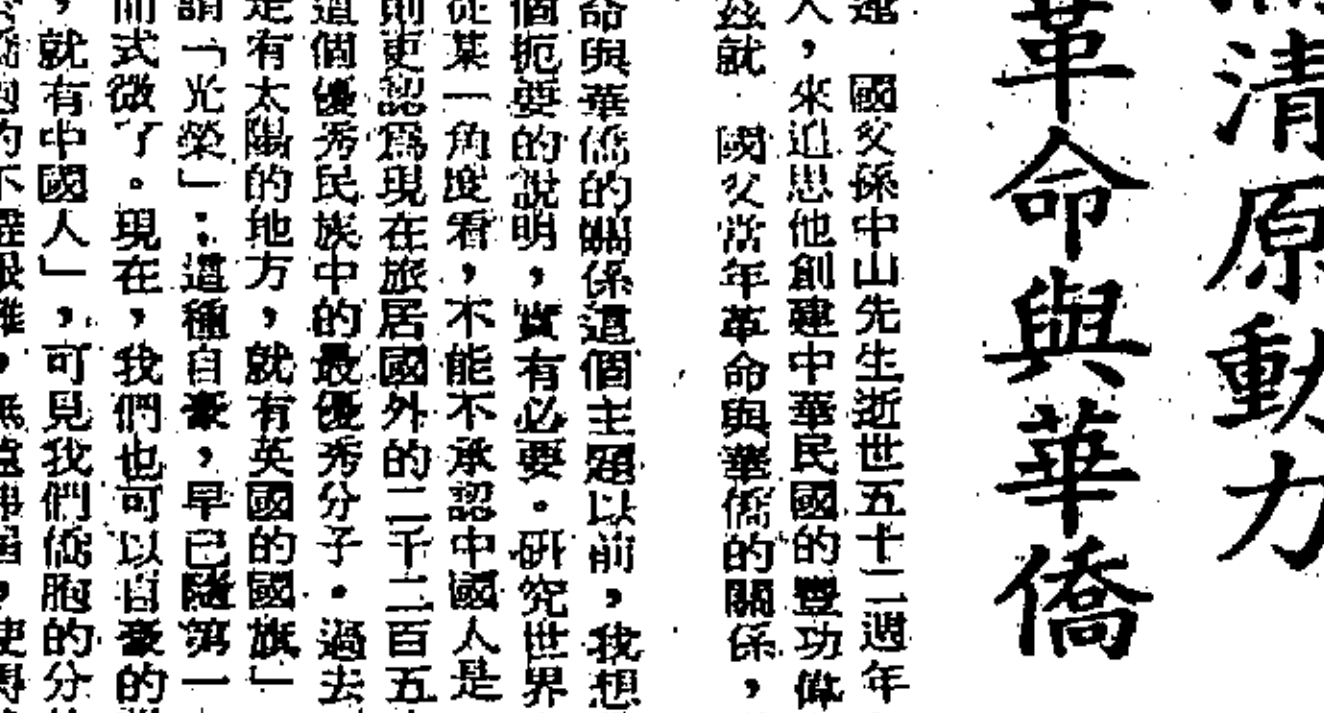 清原動力
革命與華僑
國父孫中山先生逝世五十二週年
人,來追思他創建中華民國的豐功偉
茲就 國父當年革命與華僑的關係,
命與華僑的關係這個主題以前,我想
個扼要的說明,實有必要。研究世界
從某一角度看,不能不承認中國人是
則更認爲現在旅居國外的二千二百五
這個優秀民族中的最優秀分子。過去
是有太陽的地方,就有英國的國旗」
謂「光榮」;這種自豪,早已隨第一
而式微了。現在,我們也可以自豪的
,就有中國人」,可見我們僑胞的分
的不